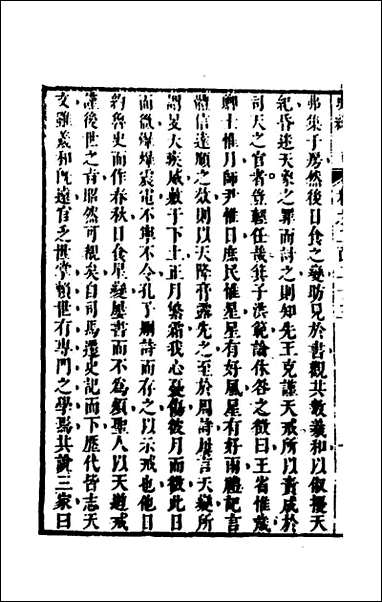 弗集于房然後日食之變昉見於書觀其數羲和以俶擾天
紀昏迷天象之罪而討之則知先王克謹天戒所以責成於
司天之官者豈輕任哉箕子洪範論休咎之徵曰王省惟歲
卿士惟月師尹惟日庶民惟星星有好風星有好雨禮記言
體信達順之效則以天降膏露先之至於周詩屢言天變所
謂旻天疾威敷于下土正月繁霜我心憂傷彼月而微此日
而微爆爆震電不寧不令孔子刪詩而存之以示戒也他日
約魯史而作春秋日食星變屢書而不為煩聖人以天道戒
謹後世之旨昭然可覩矣自司馬遷史記而下歷代皆志天
文雖羲和既遠官乏世掌賴世有專門之學焉其說三家曰